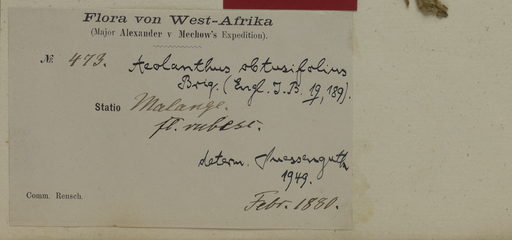 Flora von West-Afrika
(Major Alexander v Mechow's Expedition).
№ 473. Aeolanthus obtusifolius
Briq. (Engl. J. B. 19, 189).
Statio Malange.
fl. rubesc.
determ. Suessenguth
1949.
Comm. Rensch.
Febr. 1880.